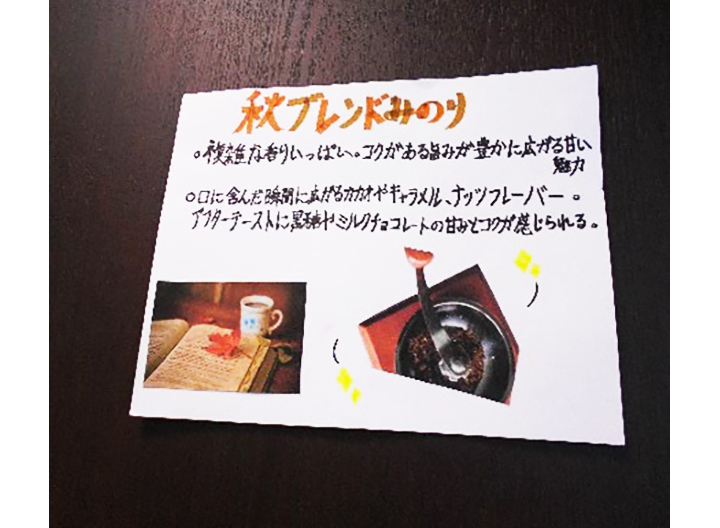 秋ブレンドみのり
○複雑な香りいっぱい。コクがある旨みが豊かに広がる甘い
魅力
○口に含んだ瞬間に広がるカカオやキャラメル、ナッツフレーバー。
アフターテーストに黒糖やミルクチョコレートの甘みとコクが感じられる。